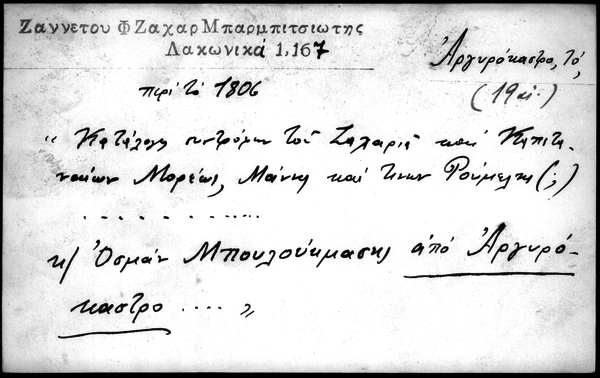 Ζαννετου Φ Ζαχαρ Μπαρμπιτσιωτης
Λακωνικά 1,167
Ἀργυρόκαστρο, τό,
(19 αἰ.)
περί τό 1806
" Κατάλογος συντρόφων τοῦ Ζαχαριᾶ καί Καπιτα-
ναίων Μορέως, Μάνης καί τινων Ρούμελης (;)
. . . . . . . . . .
κ/ Ὀσμάν Μπουλούκμπασης ἀπό Ἀργυρό-
καστρο .... "